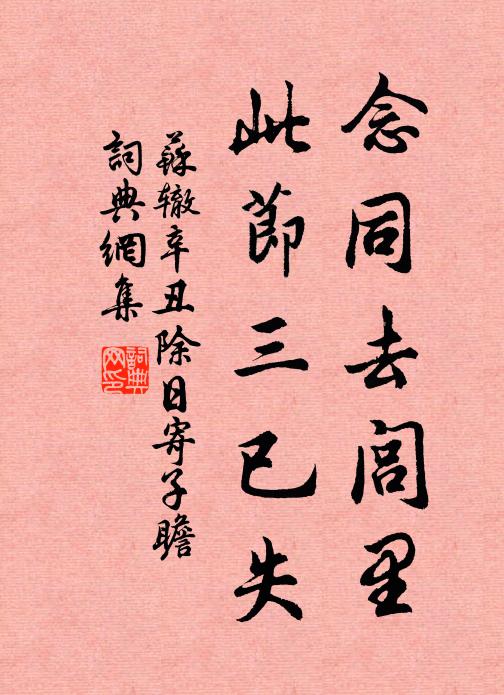 念同去闾里
此節三已失
蘇辙辛丑除日寄子瞻
詞典網集
詞典網印